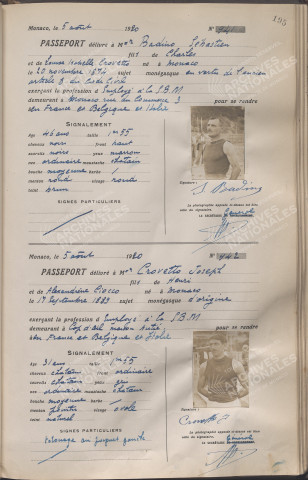 Monaco, le 5 août 1920 N° 741
PASSEPORT délivré à Mr Badino Sébastien
fils de Charles
et de Louise Isabelle Crovetto né à Monaco
le 20 novembre 1874 sujet monégasque en vertu de l'ancien
article 8 du Code Civil
exerçant la profession d'Employé à la S.B.M
demeurant à Monaco rue 3 pour se rendre
en France et Belgique et Italie
SIGNALEMENT
Age 46 ans taille 1m 55
cheveux noir front haut
sourcils noirs yeux marron
nez ordinaire moustache châtain
bouche moyenne barbe
menton rond visage ronde
teint brun
SIGNES PARTICULIERS
Signature :
S Badino
La photographie apposée ci-dessus est bien
celle du signataire.
LE SECRÉTAIRE Général
Monaco, le 5 août 1920 N° 742
PASSEPORT délivré à Mr Crovetto Joseph
fils de Henri
et de Alexandrine né à Monaco
le 17 Septembre 1889 sujet monégasque d'origine
exerçant la profession d'Employé à la S.B.M
demeurant à Cap d'ail maison pour se rendre
en France et Belgique et Italie
SIGNALEMENT
Age 31 ans taille 1m 55
cheveux châtain front ordinaire
sourcils châtain yeux
nez ordinaire moustache châtain
bouche moyenne barbe
menton visage ovale
teint naturel
SIGNES PARTICULIERS
tatouage au poignet gauche
Signature :
Crovetto J
La photographie apposée ci-dessus est bien
celle du signataire.
LE SECRÉTAIRE Général